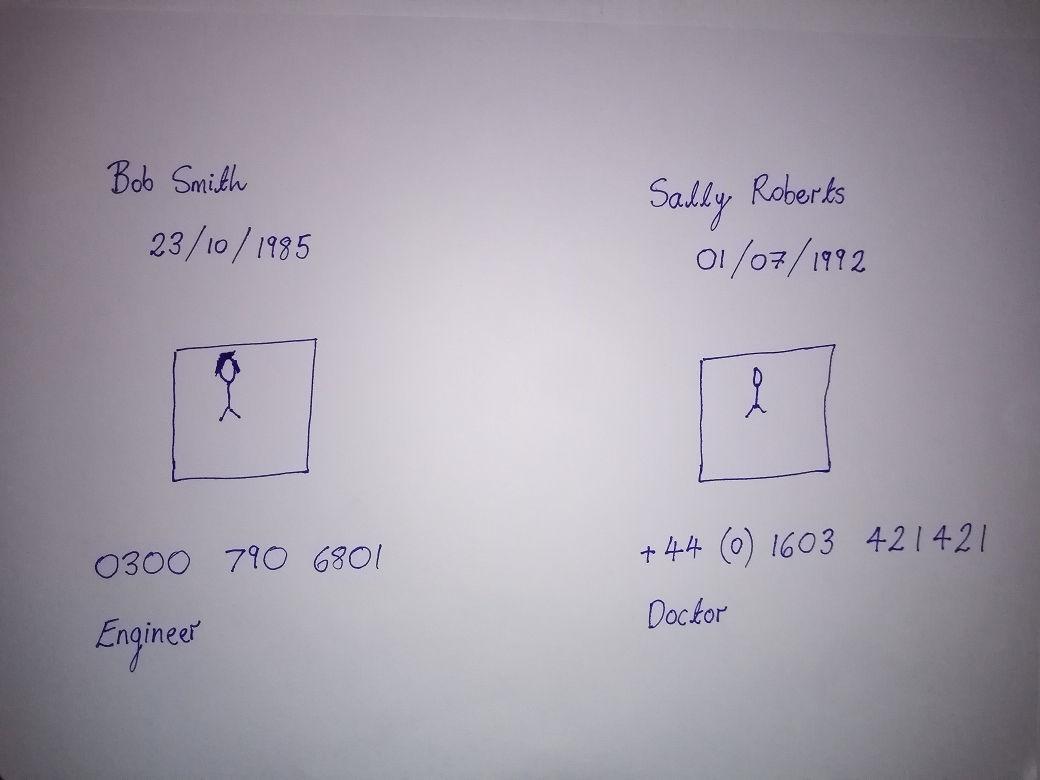 Bob Smith
23/10/1985
0300 790 6801
Engineer
Sally Roberts
01/07/1992
+44 (0) 1603 421421
Doctor